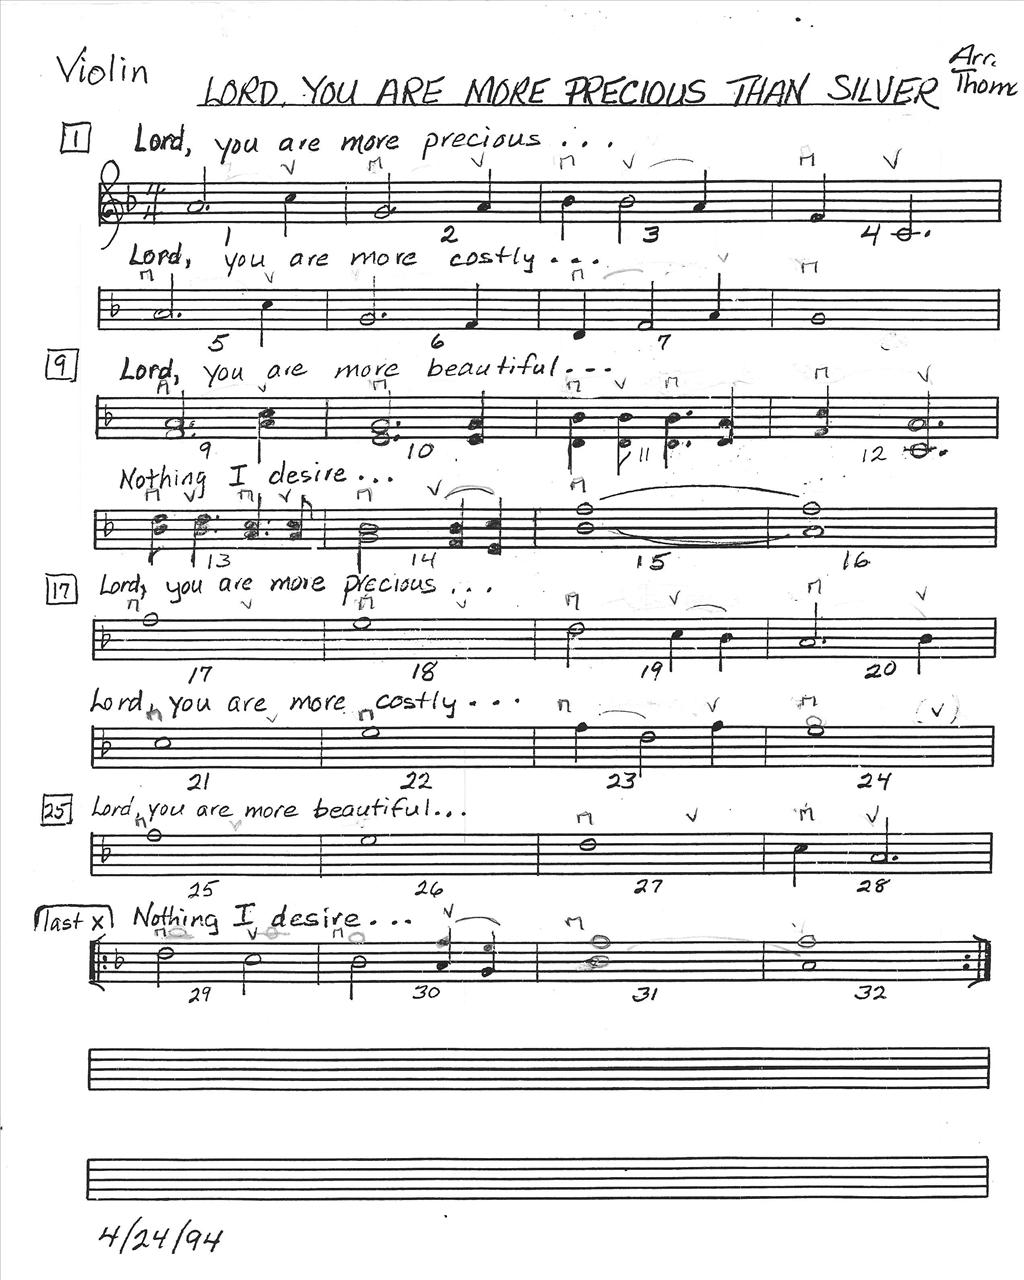 Violin
LORD, YOU ARE MORE PRECIOUS THAN SILVER
Arr.
Thom
1 Lord, you are more precious...
4 4
1 2 3 4
Lord, you are more costly...
5 6 7
9 Lord, you are more beautiful...
9 10 11 12
Nothing I desire...
13 14 15 16
17 Lord, you are more precious...
17 18 19 20
Lord, you are more costly...
21 22 23 24
25 Lord, you are more beautiful...
25 26 27 28
last x Nothing I desire...
29 30 31 32
4/24/94